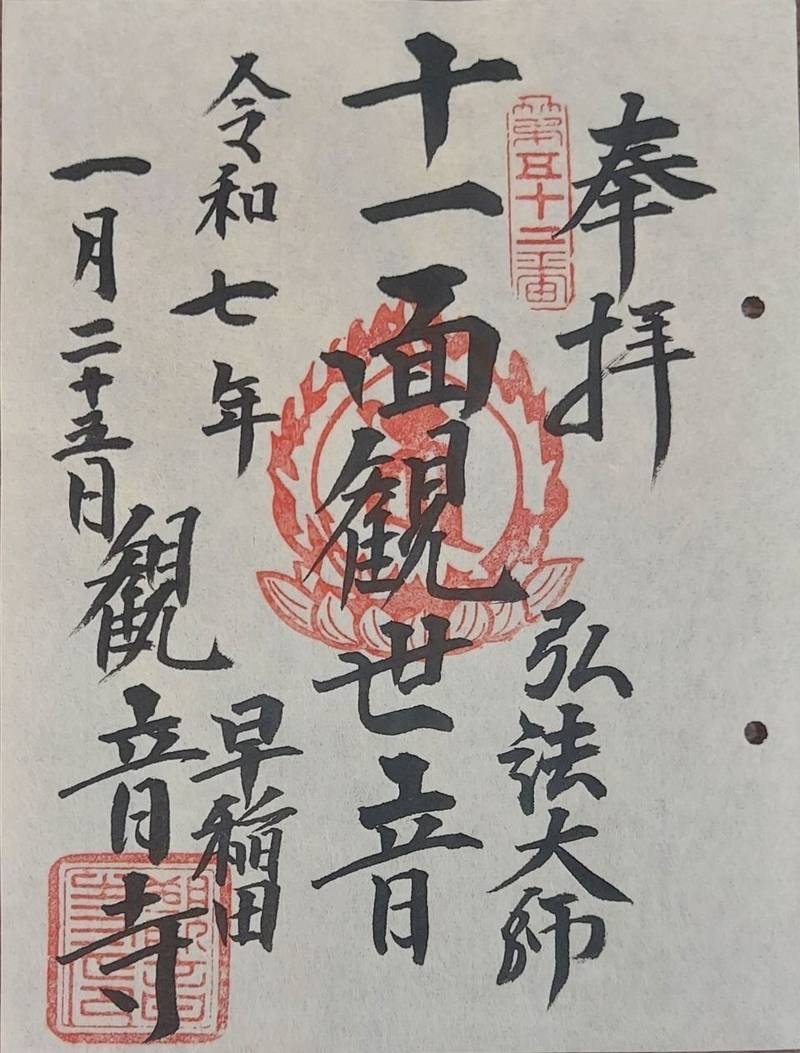 奉拝
第五十二番
弘法大師
十一面観世音
令和七年
一月二十五日
早稲田
観音寺